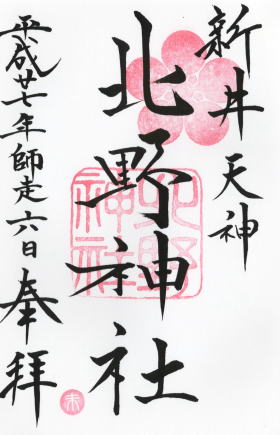 新井天神
北野神社
平成廿七年師走六日 奉拝
北野神社
未